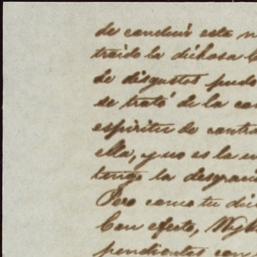 de conducir este
traido la dichosa
de disgustos pudo
se trató de la
espiritu de contra
ella, y no es la
tengo la desgracia
Pero como tu
Con efecto,
pendientes con